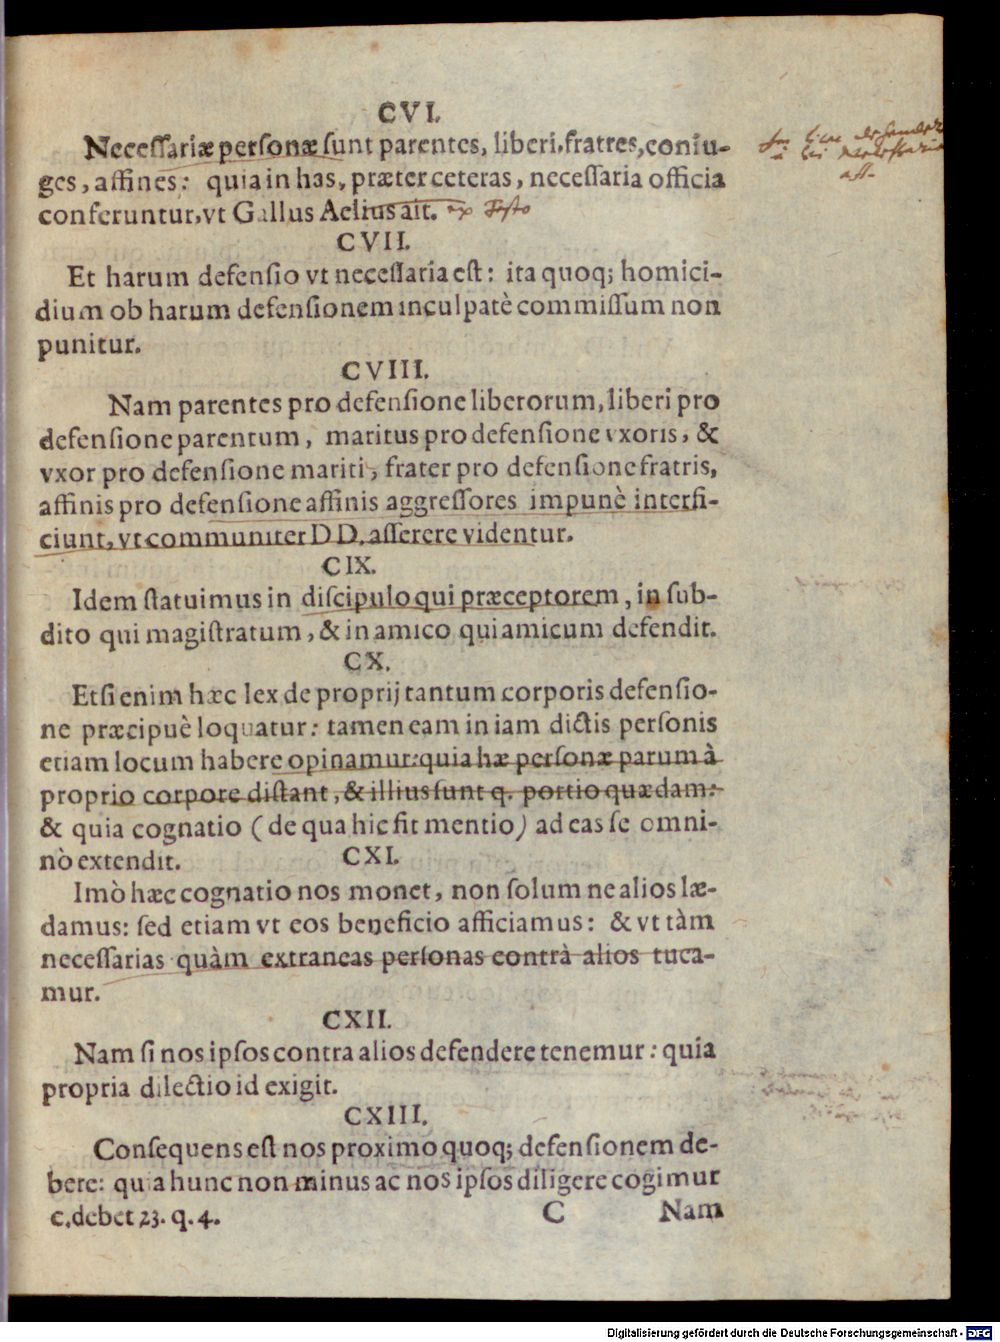 CVI.
Necessariæ personæ sunt parentes, liberi, fratres, coniu-
ges, affines: quia in has, præter ceteras, necessaria officia
conferuntur, vt Gallus Aelius ait. ex Festo
CVII.
Et harum defensio vt necessaria est: ita quoq; homici-
dium ob harum defensionem inculpatè commissum non
punitur.
CVIII.
Nam parentes pro defensione liberorum, liberi pro
defensione parentum, maritus pro defensione vxoris, &
vxor pro defensione mariti, frater pro defensione fratris,
affinis pro defensione affinis aggressores impunè interfi-
ciunt, vt communiter DD. asserere videntur.
CIX.
Idem statuimus in discipulo qui præceptorem, in sub-
dito qui magistratum, & in amico qui amicum defendit.
CX.
Etsi enim hæc lex de proprij tantum corporis defensio-
ne præcipuè loquatur: tamen eam in iam dictis personis
etiam locum habere opinamur: quia hæ personæ parum à
proprio corpore distant, & illius sunt q. portio quædam:
& quia cognatio (de qua hic fit mentio) ad eas se omni-
nò extendit.
CXI.
Imò hæc cognatio nos monet, non solum ne alios læ-
damus: sed etiam vt eos beneficio afficiamus: & vt tàm
necessarias quàm extraneas personas contrà alios tuea-
mur.
CXII.
Nam si nos ipsos contra alios defendere tenemur: quia
propria dilectio id exigit.
CXIII.
Consequens est nos proximo quoq; defensionem de-
bere: quia hunc non minus ac nos ipsos diligere cogimur
c. debet 23. q. 4.
C Nam
Digitalisierung gefördert durch die Deutsche Forschungsgemeinschaft - DFG